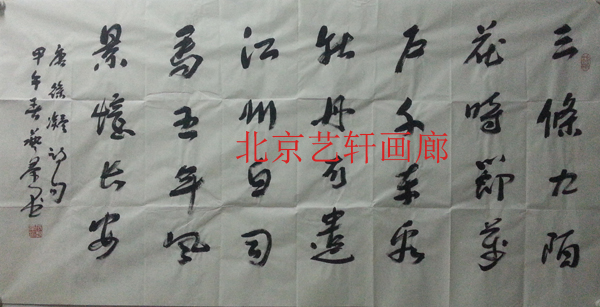 三條九陌
花時節萬
户千車看
牡丹爭遣
江州白司
馬五年風
景憶長安
唐徐凝詩句
甲午春
北京艺轩画廊